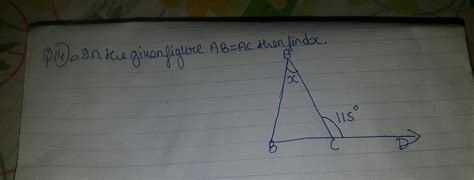 Q14). In the given figure AB=AC then find x.
A
x
115°
B C D